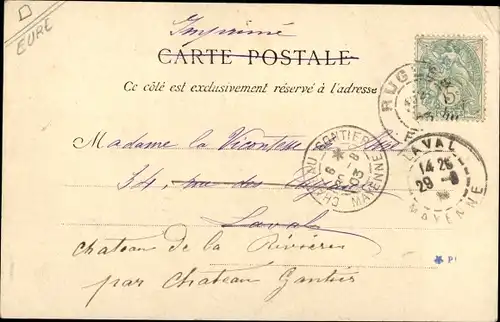 EURE
Imprimé
CARTE POSTALE
Ce côté est exclusivement réservé à l'adresse
RUG
5
Madame la Vicontesse de
CHATEAU GONTIER
MAYENNE
LAVAL
14 25
29 -8
MAYENNE
34, rue des
Laval
Chateau de la Rivières
par Chateau Gontier